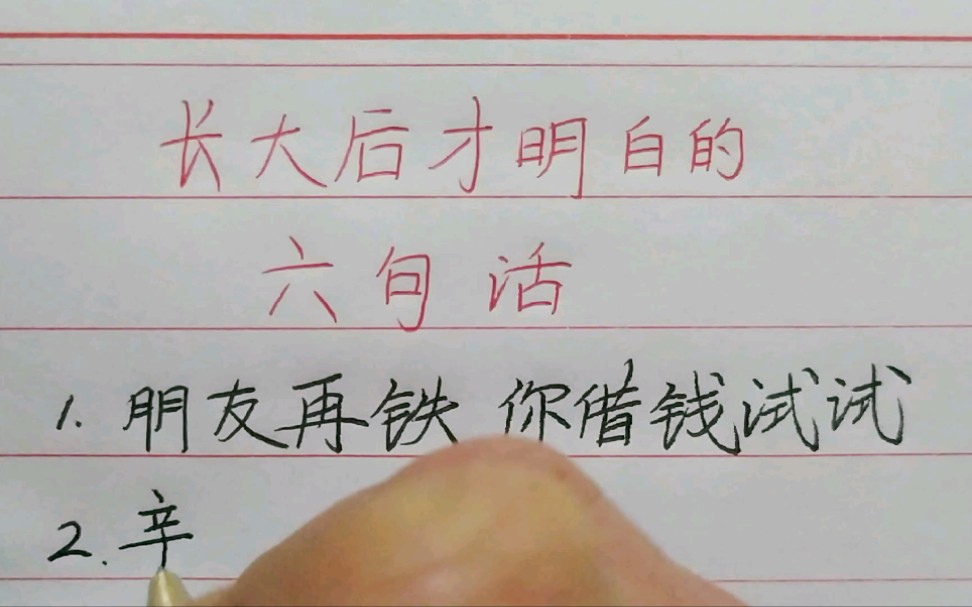 长大后才明白的
六句活
1. 朋友再铁 你借钱试试
2. 辛